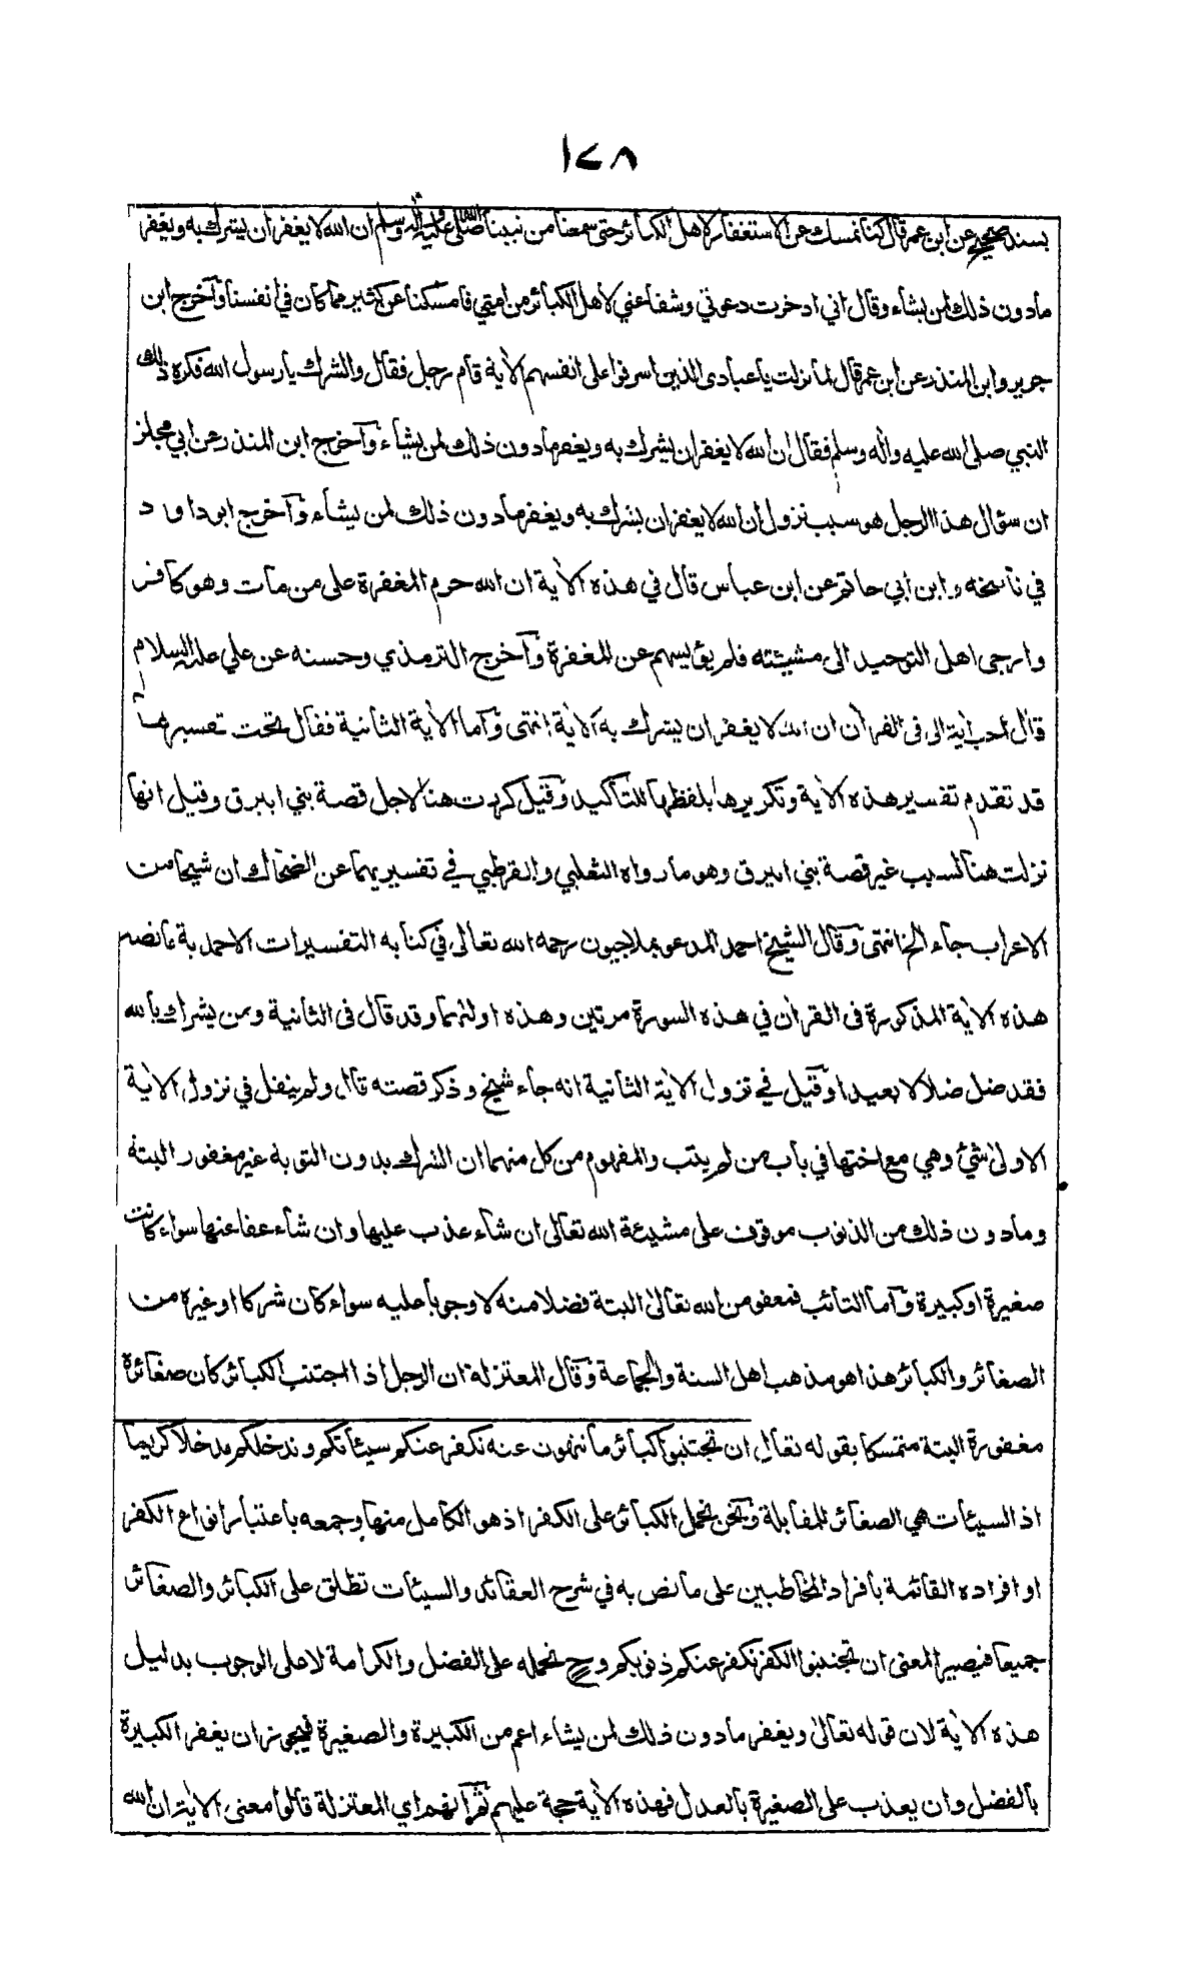 ١٤٨
بسند صحيح عن ابن عمر قال كنا نمسك عن الاستغفار لاهل الكبائر حتى سمعنا من نبينا صلى الله عليه واله وسلم ان الله لا يغفر ان يشرك به ويغفر
مادون ذلك لمن يشاء وقال اني ادخرت دعوتي وشفاعتي لاهل الكبائر من امتي فامسكنا عن كثير مما كان في انفسنا وآخرج ابن
جرير وابن المنذر عن ابن عمر قال لما نزلت يا عبادى الذين اسرفوا على انفسهم الاٰية قام رجل فقال والشرك يا رسول الله فكره ذلك
النبي صلى الله عليه واله وسلم فقال ان الله لا يغفر ان يشرك به ويغفر مادون ذلك لمن يشاء وآخرج ابن المنذر عن ابي مجلز
ان سؤال هذا الرجل هو سبب نزول ان الله لا يغفر ان يشرك به ويغفر مادون ذلك لمن يشاء وآخرج ابوداود
في ناسخه وابن ابي حاتم عن ابن عباس قال في هذه الاٰية ان الله حرم المغفرة على من مات وهو كافر
وارجى اهل التوحيد الى مشيئته فلم يؤيسهم عن المغفرة وآخرج الترمذي وحسنه عن علي عليه السلام
قال احب اية الى فى القران ان الله لا يغفر ان يشرك به الاٰية انتهى وآما الاٰية الثانية فقال تحت تفسيرها
قد تقدم تفسير هذه الاٰية وتكريرها بلفظها للتأكيد وقيل كررت هنا لاجل قصة بني ابيرق وقيل انها
نزلت هنا لسبب غير قصة بني ابيرق وهو ما رواه الثعلبي والقرطبي في تفسيريهما عن الضحاك ان شيخا من
الاعراب جاء الخ انتهى وقال الشيخ احمد المدعو بملاجيون رحمه الله تعالى في كتابه التفسيرات الاحمدية ما نصه
هذه الاٰية المذكورة فى القران في هذه السورة مرتين وهذه اولٰهما وقد قال فى الثانية ومن يشرك بالله
فقد ضل ضلالا بعيدا وقيل في نزول الاٰية الثانية انه جاء شيخ وذكر قصته قال ولم ينقل في نزول الاٰية
الاولى شئ وهي مع اختها في باب من لم يتب والمفهوم من كل منهما ان الشرك بدون التوبة غير مغفور البتة
ومادون ذلك من الذنوب موقوف على مشيئة الله تعالى ان شاء عذب عليها وان شاء عفا عنها سواء كانت
صغيرة او كبيرة وآما التائب فمعفو من الله تعالى البتة فضلا منه لا وجوبا عليه سواء كان شركا او غيره من
الصغائر والكبائر هذا هو مذهب اهل السنة والجماعة وقال المعتزلة ان الرجل اذا اجتنب الكبائر كان صغائره
مغفورة البتة متمسكا بقوله تعالى ان تجتنبوا كبائر ما تنهون عنه نكفر عنكم سيئاتكم وندخلكم مدخلا كريما
اذ السيئات هي الصغائر للمقابلة ونحن نحمل الكبائر على الكفر اذ هو الكامل منها وجمعه باعتبار انواع الكفر
او افراده القائمة بافراد المخاطبين على ما نص به في شرح العقائد والسيئات تطلق على الكبائر والصغائر
جميعا فيصير المعنى ان تجتنبوا الكفر نكفر عنكم ذنوبكم وح نحمله على الفضل والكرامة لا على الوجوب بدليل
هذه الاٰية لان قوله تعالى ويغفر مادون ذلك لمن يشاء اعم من الكبيرة والصغيرة فيجوز ان يغفر الكبيرة
بالفضل وان يعذب على الصغيرة بالعدل فهذه الاٰية حجة عليهم ثم انهم اي المعتزلة قالوا معنى الاٰية ان الله